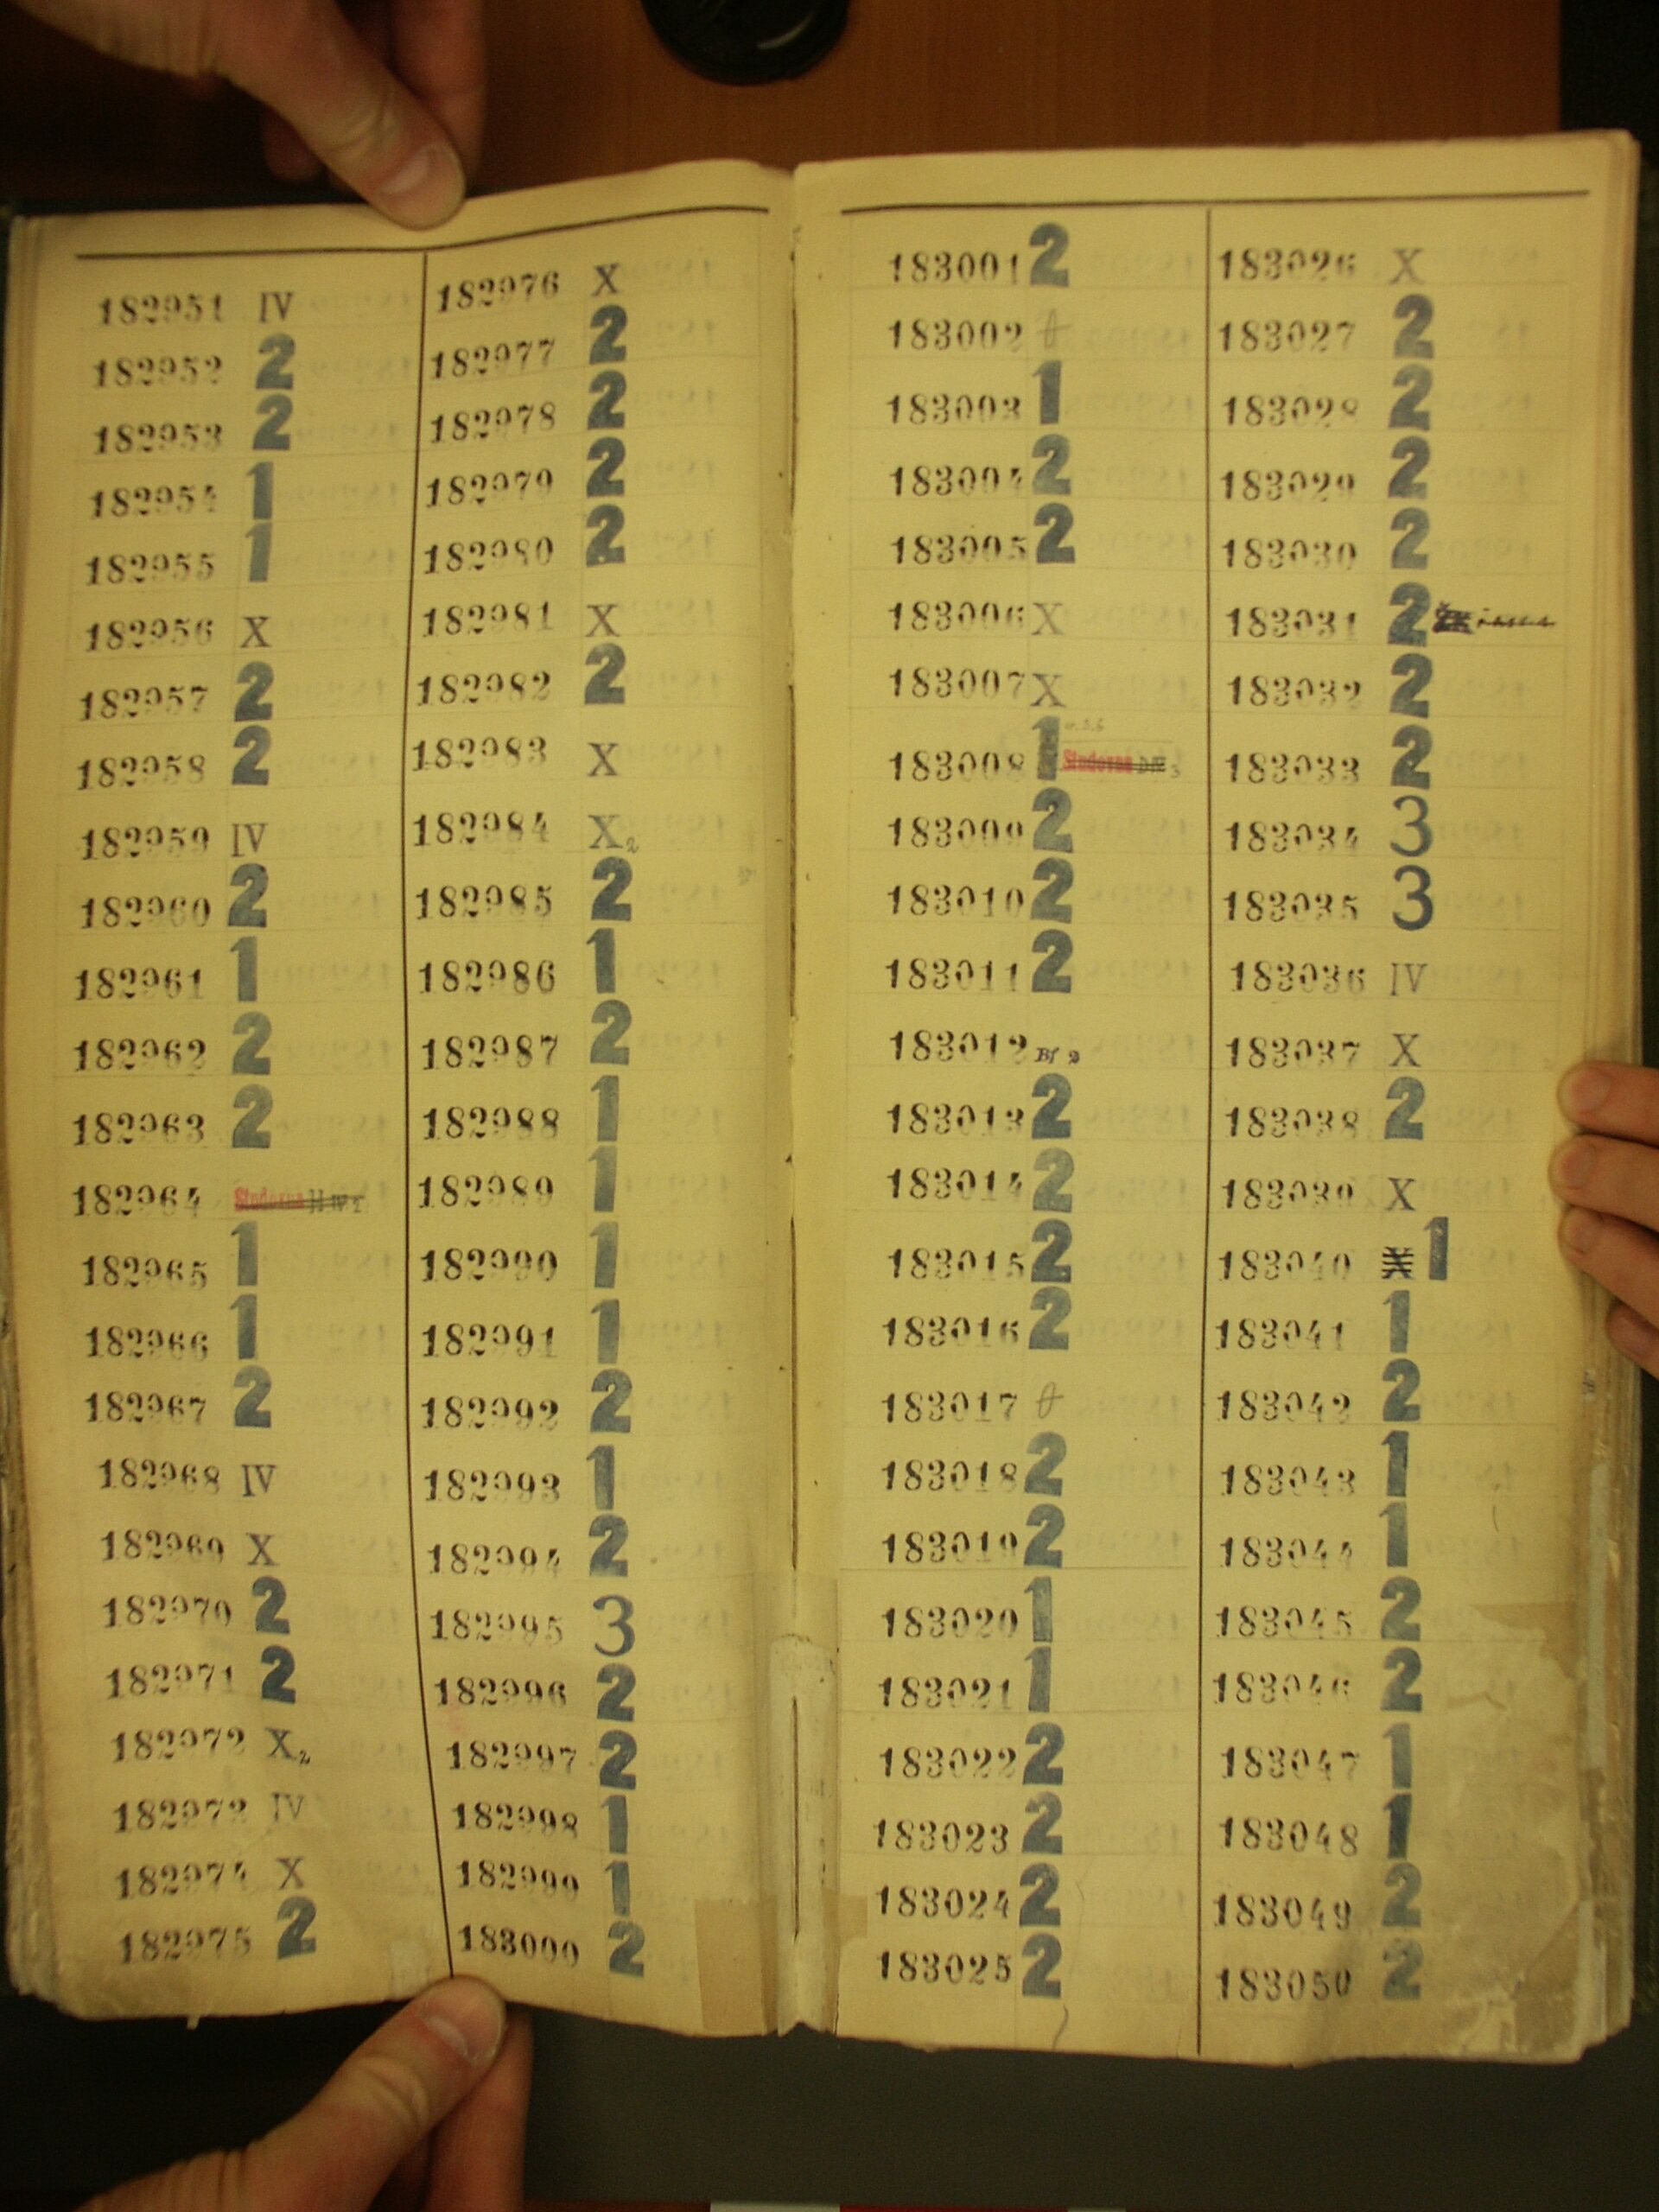 182951 IV
182952 2
182953 2
182954 1
182955 1
182956 X
182957 2
182958 2
182959 IV
182960 2
182961 1
182962 2
182963 2
182964 Studerna
182965 1
182966 1
182967 2
182968 IV
182969 X
182970 2
182971 2
182972 X2
182973 IV
182974 X
182975 2
182976 X
182977 2
182978 2
182979 2
182980 2
182981 X
182982 2
182983 X
182984 X2
182985 2
182986 1
182987 2
182988 1
182989 1
182990 1
182991 1
182992 2
182993 1
182994 2
182995 3
182996 2
182997 2
182998 1
182999 1
183000 2
183001 2
183002
183003 1
183004 2
183005 2
183006 X
183007 X
183008 1 Studerna
183009 2
183010 2
183011 2
183012 Bf 2
183013 2
183014 2
183015 2
183016 2
183017
183018 2
183019 2
183020 1
183021 1
183022 2
183023 2
183024 2
183025 2
183026 X
183027 2
183028 2
183029 2
183030 2
183031 2
183032 2
183033 2
183034 3
183035 3
183036 IV
183037 X
183038 2
183039 X
183040 X 1
183041 1
183042 2
183043 1
183044 1
183045 2
183046 2
183047 1
183048 1
183049 2
183050 2